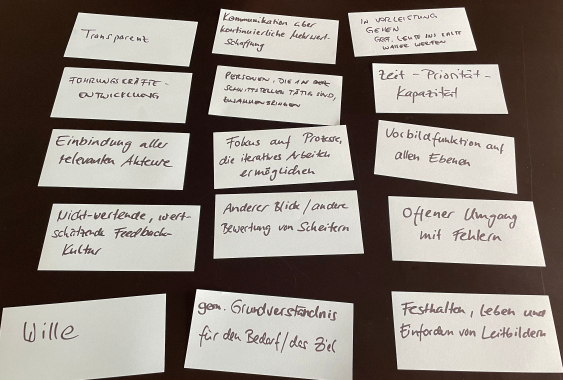 Transparenz
Kommunikation über
kontinuierliche Mehrwert-
Schaffung
IN VORLEISTUNG
GEHEN
GGF. LEUTE INS KALTE
WASSER WERFEN
FÜHRUNGSKRÄFTE-
ENTWICKLUNG
PERSONEN, DIE IN DER
SCHNITTSTELLEN TÄTIG SIND,
ZUSAMMENBRINGEN
Zeit - Priorität -
Kapazität
Einbindung aller
relevanten Akteure
Fokus auf Prozesse,
die iteratives Arbeiten
ermöglichen
Vorbildfunktion auf
allen Ebenen
Nicht-wertende, wert-
schätzende Feedback-
Kultur
Anderer Blick/andere
Bewertung von Scheitern
Offener Umgang
mit Fehlern
Wille
gem. Grundverständnis
für den Bedarf/das Ziel
Festhalten, leben und
Einfordern von Leitbildern